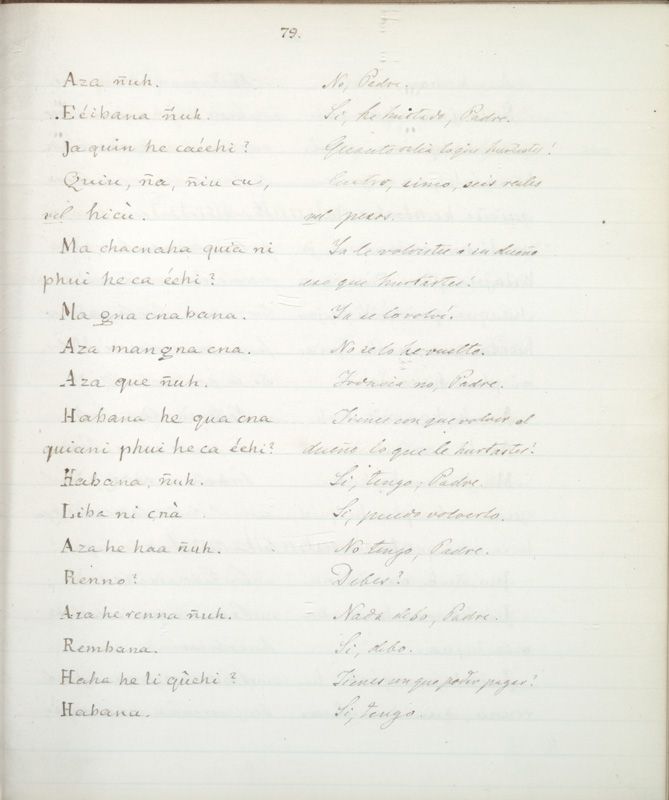 79.
Aza ñuh. No, Padre.
Eéibana ñuh. Si, he hurtado, Padre.
Ja quin he caéehi? Quanto valia loque hurtaste?
Quiu, ña, ñiu cu, Cuatro, cinco, seis reales
vel hicù. vel pesos.
Ma chacnaha quia ni Ya le volviste á su dueño
phui he ca éehi? eso que hurtastes?
Ma gna cnabana. Ya se lo volví.
Aza mangna cna. No se lo he vuelto.
Aza que ñuh. Todavia no, Padre.
Habana he qua cna Tienes con que volver al
quiani phui he ca éehi? dueño lo que le hurtastes?
Habana, ñuh. Si, tengo, Padre.
Liba ni cnà Si, puedo volverlo.
Aza he haa ñuh. No tengo, Padre.
Renno? Debes?
Aza he renna ñuh. Nada debo, Padre.
Rembana. Si, debo.
Haha he li qûehi? Tienes con que poder pagar?
Habana. Si, tengo.